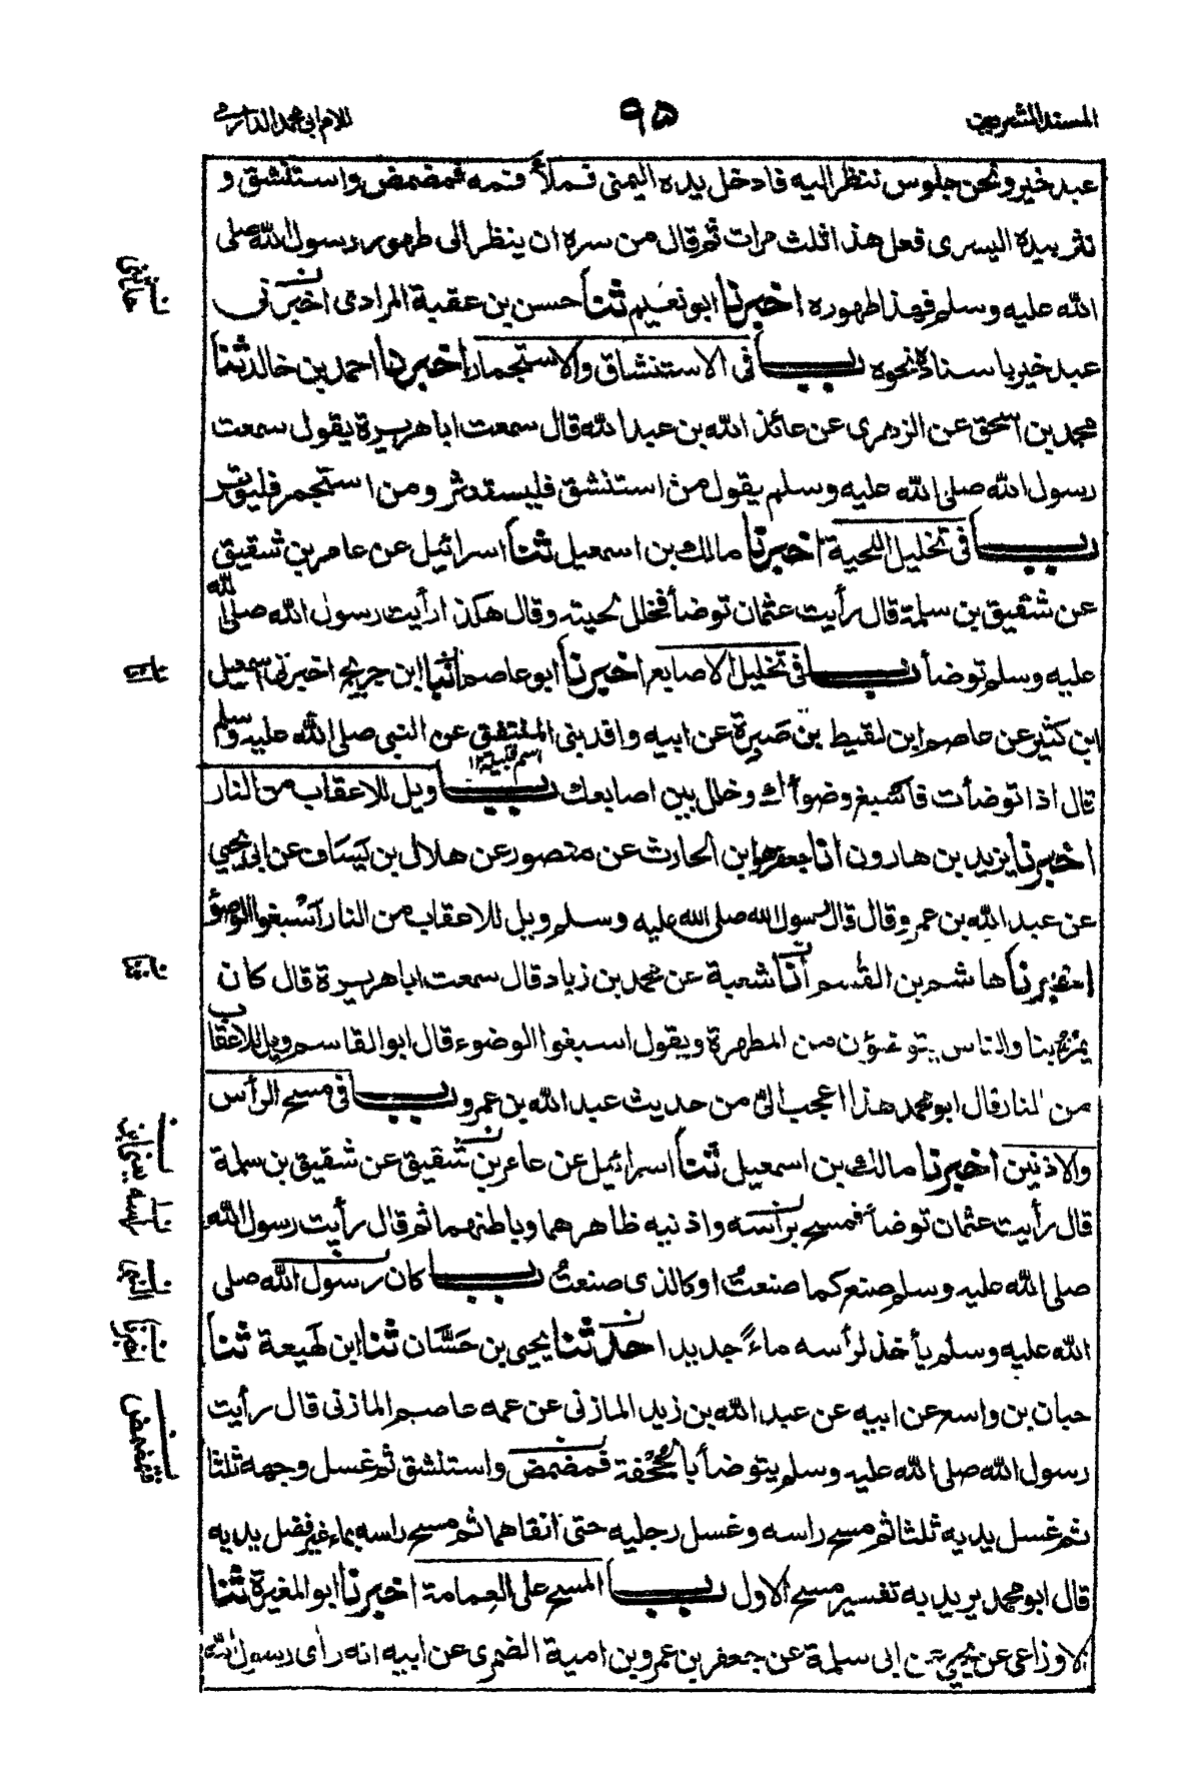 المسند الشريف
٩٥
للامام ابى محمد الدارمى
عبد خير ونحن جلوس ننظر اليه فادخل يده اليمنى فملأ فمه فمضمض واستنشق و
نثر بيده اليسرى فعل هذا ثلث مرات ثم قال من سره ان ينظر الى طهور رسول الله صلى
الله عليه وسلم فهذا طهوره اخبرنا ابو نعيم ثنا حسن بن عقبة المرادى اخبرنى
عبد خير باسناده نحوه باب فى الاستنشاق والاستجمار اخبرنا احمد بن خالد ثنا
محمد بن اسحق عن الزهرى عن عائذ الله بن عبد الله قال سمعت ابا هريرة يقول سمعت
رسول الله صلى الله عليه وسلم يقول من استنشق فليستنثر ومن استجمر فليوتر
باب فى تخليل اللحية اخبرنا مالك بن اسمعيل ثنا اسرائيل عن عامر بن شقيق
عن شقيق بن سلمة قال رأيت عثمان توضأ فخلل لحيته وقال هكذا رأيت رسول الله صلى الله
عليه وسلم توضأ باب فى تخليل الاصابع اخبرنا ابو عاصم انبا ابن جريج اخبرنى اسمعيل
ابن كثير عن عاصم ابن لقيط بن صبرة عن ابيه وافد بنى المنتفق عن النبى صلى الله عليه وسلم
اسم قبيلة ١٢
قال اذا توضأت فاسبغ وضوأك وخلل بين اصابعك باب ويل للاعقاب من النار
اخبرنا يزيد بن هارون انا جعفر هو ابن الحارث عن منصور عن هلال بن يساف عن ابى يحيى
عن عبد الله بن عمرو قال قال رسول الله صلى الله عليه وسلم ويل للاعقاب من النار اسبغوا الوضوء
اخبرنا هاشم بن القسم أنا شعبة عن محمد بن زياد قال سمعت ابا هريرة قال كان
يمر بنا والناس يتوضؤن من المطهرة ويقول اسبغوا الوضوء قال ابو القاسم ويل للاعقاب
من النار قال ابو محمد هذا اعجب الى من حديث عبد الله بن عمرو باب فى مسح الرأس
والاذنين اخبرنا مالك بن اسمعيل ثنا اسرائيل عن عامر بن شقيق عن شقيق بن سلمة
قال رأيت عثمان توضأ فمسح برأسه واذنيه ظاهرهما وباطنهما ثم قال رأيت رسول الله
صلى الله عليه وسلم صنع كما صنعت او كالذى صنعت باب كان رسول الله صلى
الله عليه وسلم يأخذ لرأسه ماءً جديدا حدثنا يحيى بن حسّان ثنا ابن لهيعة ثنا
حبان بن واسع عن ابيه عن عبد الله بن زيد المازنى عن عمه عاصم المازنى قال رأيت
رسول الله صلى الله عليه وسلم يتوضأ بالجحفة فمضمض واستنشق ثم غسل وجهه ثلثا
ثم غسل يديه ثلثا ثم مسح راسه وغسل رجليه حتى انقاهما ثم مسح راسه بماء غير فضل يديه
قال ابو محمد يريد به تفسير مسح الاول باب المسح على العمامة اخبرنا ابو المغيرة ثنا
الاوزاعى عن يحيى بن ابى سلمة عن جعفر بن عمرو بن امية الضمرى عن ابيه انه رأى رسول الله
ثنا
النبى
اخبرنا
فتمضمض